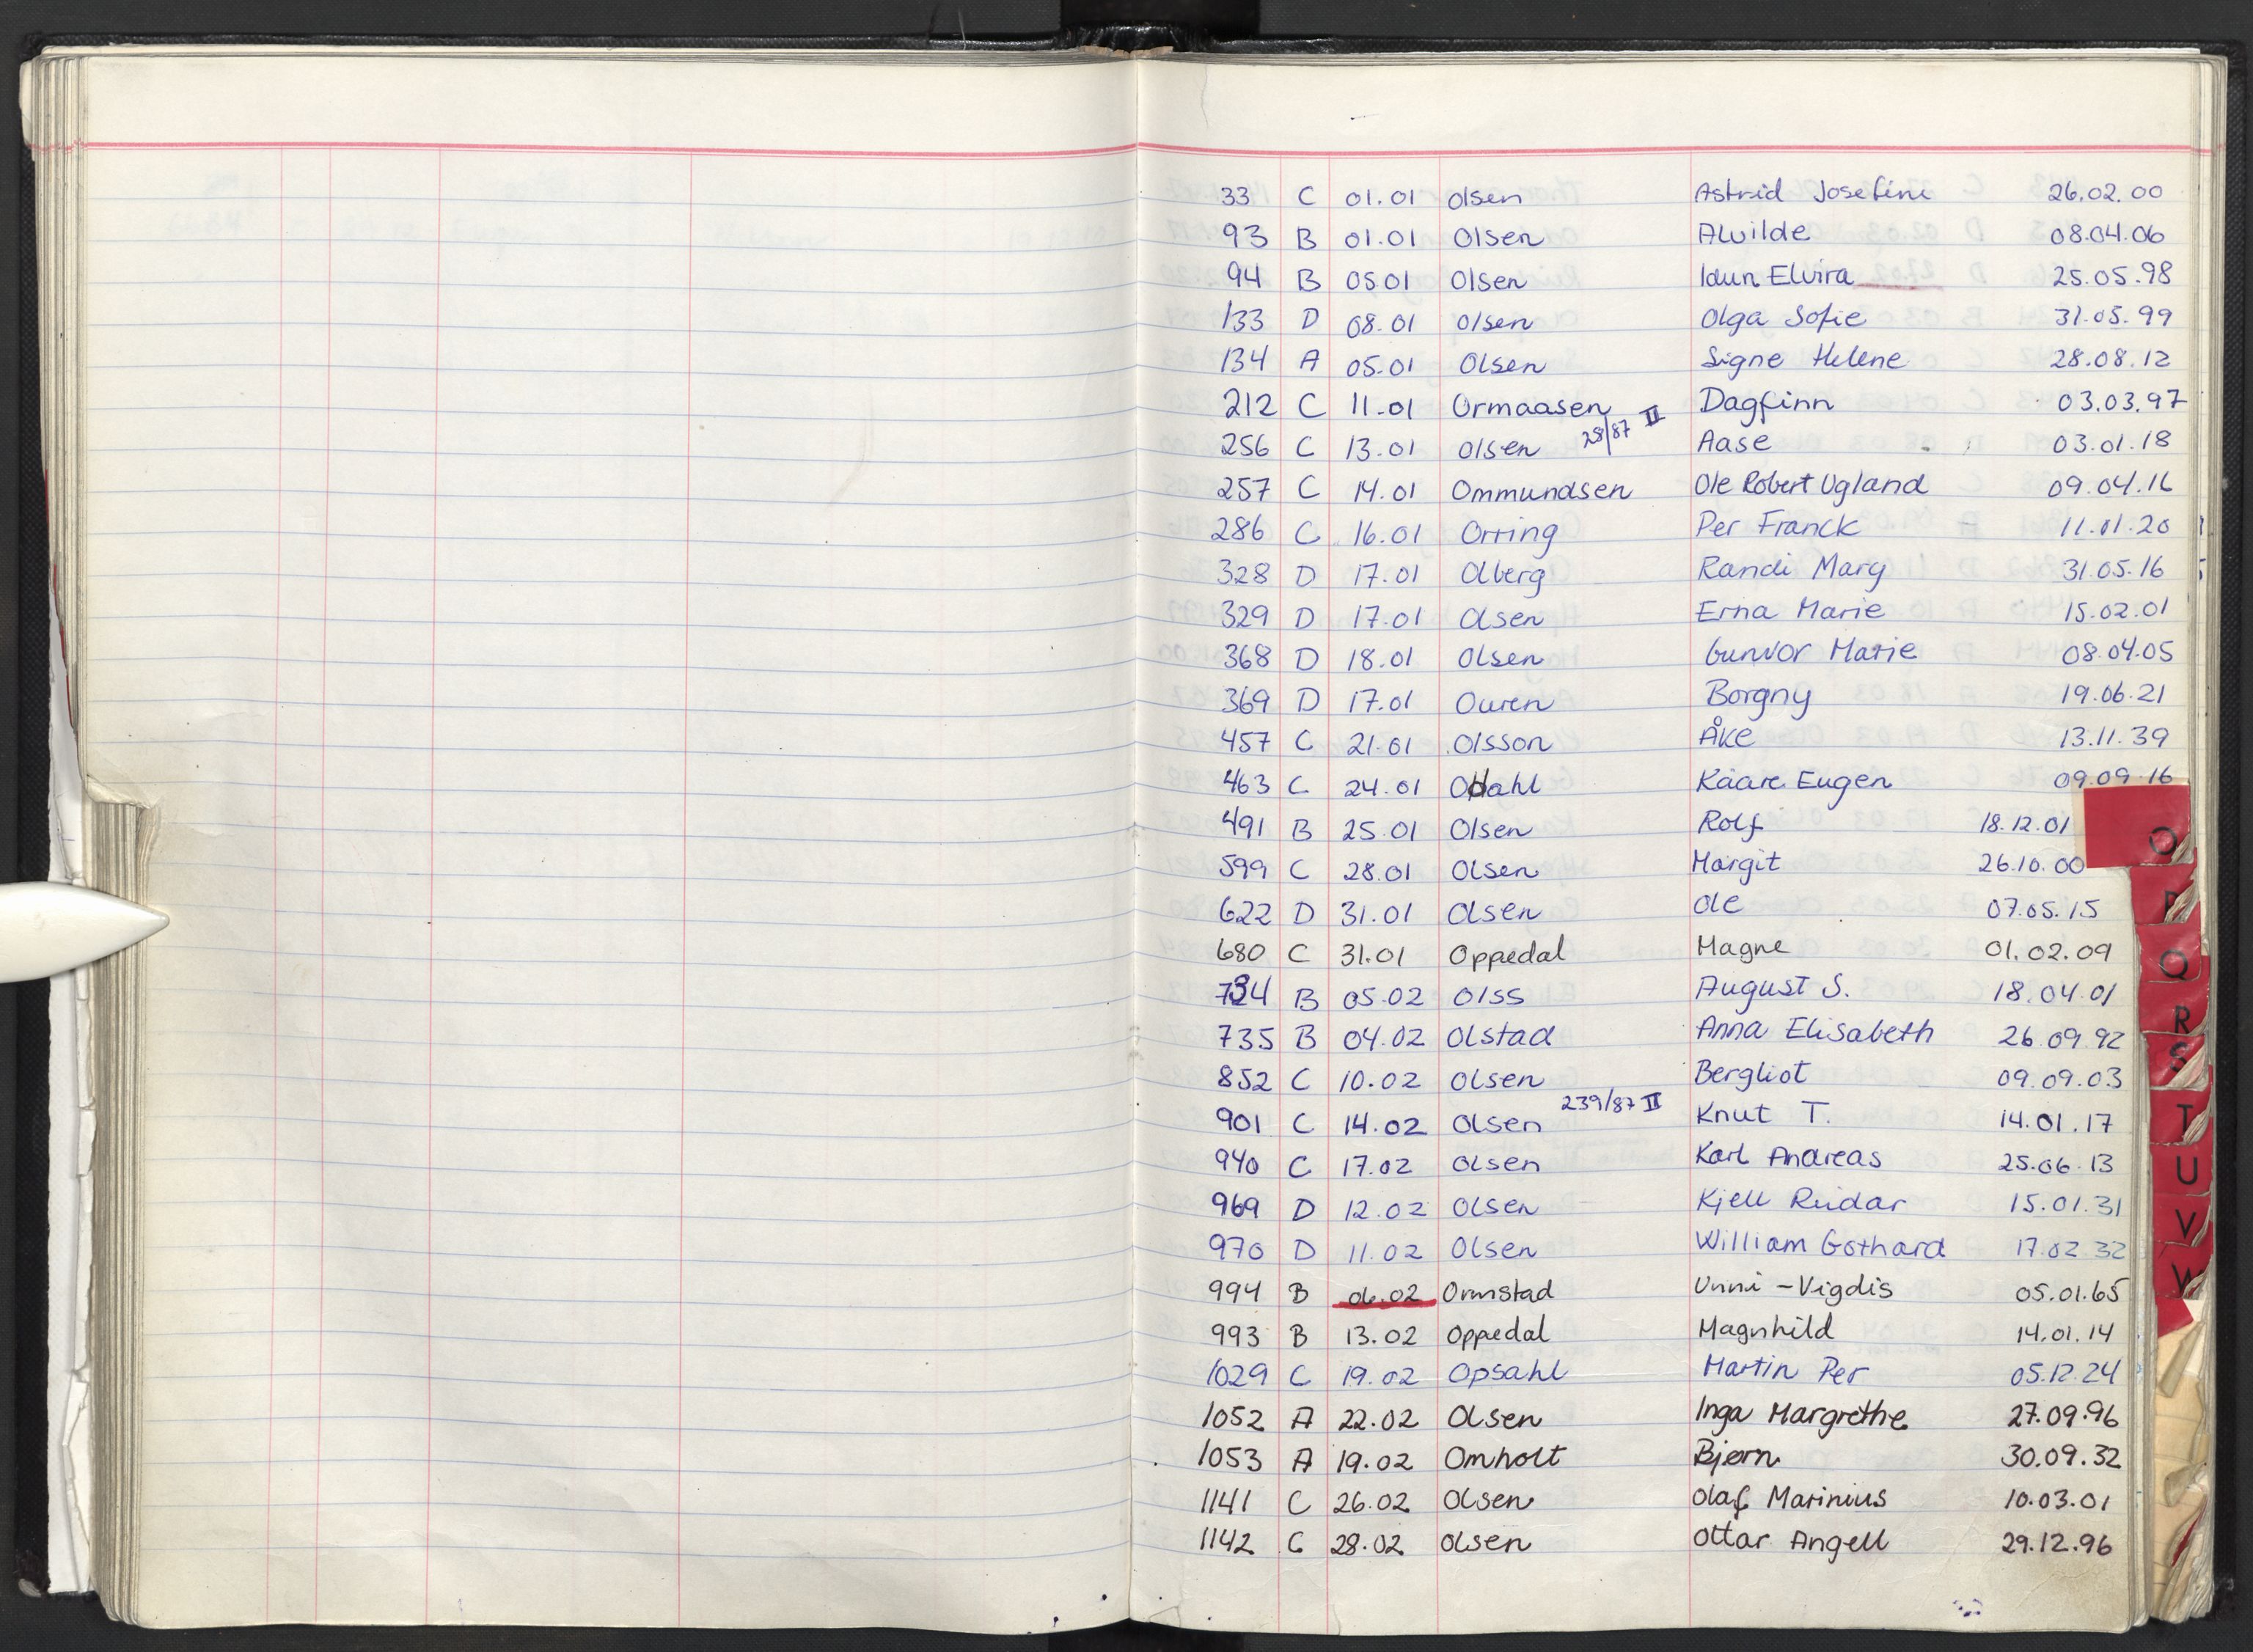 33 C 01.01 Olsen Astrid Josefine 26.02.00
93 B 01.01 Olsen Alvilde 08.04.06
94 B 05.01 Olsen Idun Elvira 25.05.98
133 D 08.01 Olsen Olga Sofie 31.05.99
134 A 05.01 Olsen Signe Helene 28.08.12
212 C 11.01 Ormaasen Dagfinn 03.03.97
28/87 II
256 C 13.01 Olsen Aase 03.01.18
257 C 14.01 Ommundsen Ole Robert Ugland 09.04.16
286 C 16.01 Orring Per Franck 11.01.20
328 D 17.01 Olberg Randi Mary 31.05.16
329 D 17.01 Olsen Erna Marie 15.02.01
368 D 18.01 Olsen Gunvor Marie 08.04.05
369 D 17.01 Ouren Borgny 19.06.21
457 C 21.01 Olsson Åke 13.11.39
463 C 24.01 Odahl Kåare Eugen 09.09.16
491 B 25.01 Olsen Rolf 18.12.01
599 C 28.01 Olsen Margit 26.10.00
622 D 31.01 Olsen Ole 07.05.15
680 C 31.01 Oppedal Magne 01.02.09
734 B 05.02 Olss August S. 18.04.01
735 B 04.02 Olstad Anna Elisabeth 26.09.92
852 C 10.02 Olsen Bergliot 09.09.03
239/87 II
901 C 14.02 Olsen Knut T. 14.01.17
940 C 17.02 Olsen Karl Andreas 25.06.13
969 D 12.02 Olsen Kjell Reidar 15.01.31
970 D 11.02 Olsen William Gothard 17.02.32
994 B 06.02 Ormstad Unni-Vigdis 05.01.65
993 B 13.02 Oppedal Magnhild 14.01.14
1029 C 19.02 Opsahl Martin Per 05.12.24
1052 A 22.02 Olsen Inga Margrethe 27.09.96
1053 A 19.02 Omholt Bjørn 30.09.32
1141 C 26.02 Olsen Olaf Marinius 10.03.01
1142 C 28.02 Olsen Ottar Angell 29.12.96
O
P
Q
R
S
T
U
V
W